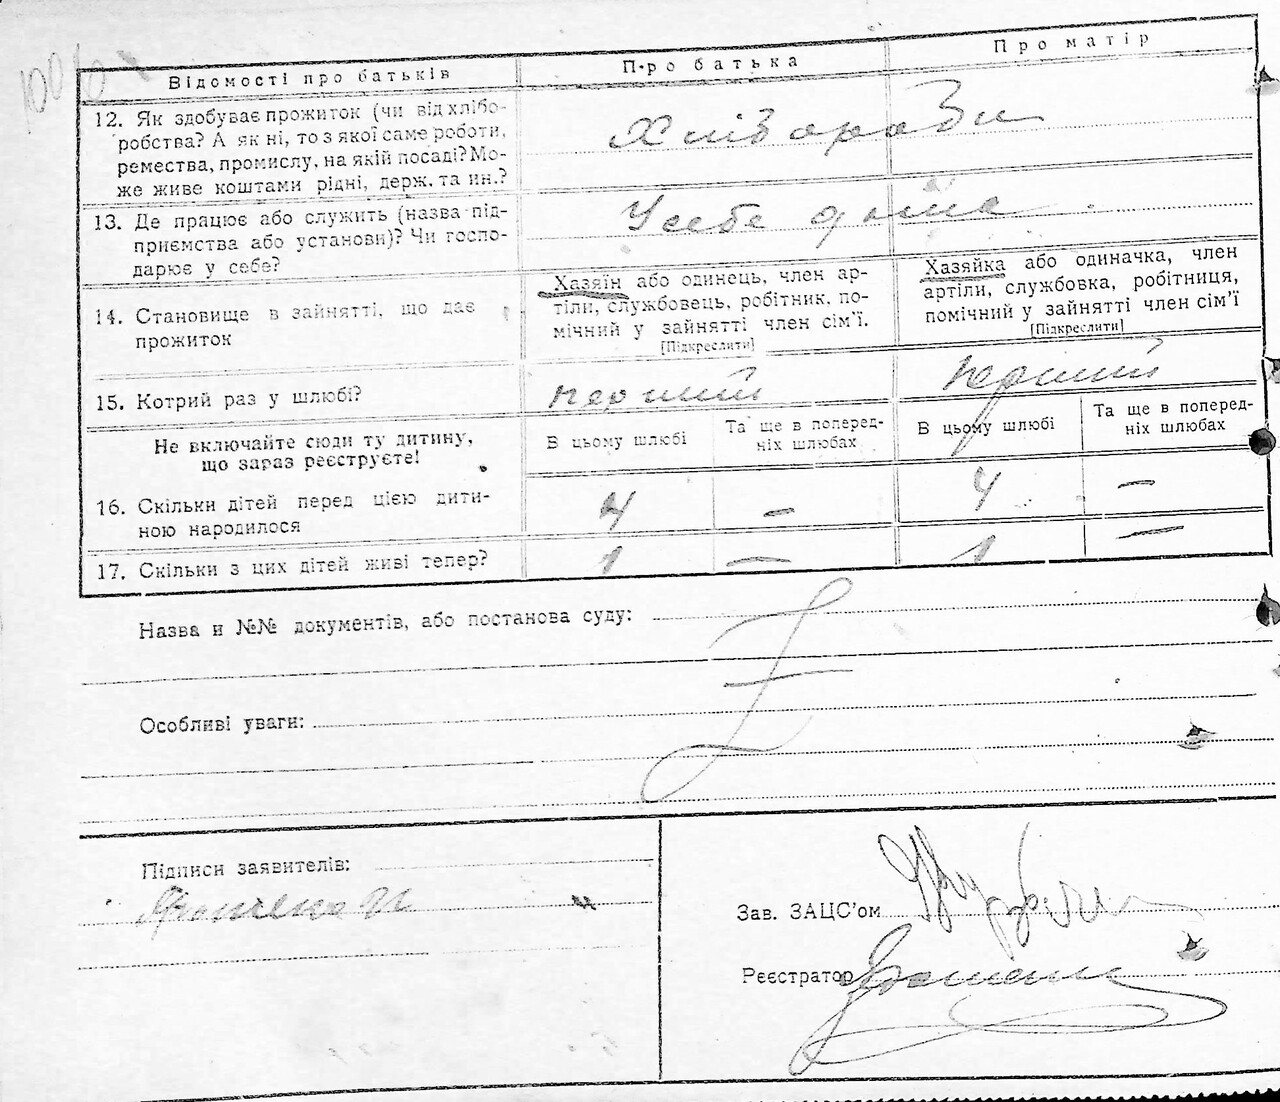 Відомості про батьків
Про батька
Про матір
12. Як здобуває прожиток (чи від хлібо-
робства? А як ні, то з якої саме роботи,
ремества, промислу, на якій посаді? Мо-
же живе коштами рідні, держ. та ин.?
Хлібороби
13. Де працює або служить (назва під-
приємства або установи)? Чи госпо-
дарює у себе?
У себе дома
14. Становище в зайнятті, що дає
прожиток
Хазяїн або одинець, член ар-
тіли, службовець, робітник, по-
мічний у зайнятті член сім'ї.
[Підкреслити]
Хазяйка або одиначка, член
артіли, службовка, робітниця,
помічний у зайнятті член сім'ї
[Підкреслити]
15. Котрий раз у шлюбі?
перший
перший
Не включайте сюди ту дитину,
що зараз реєструєте!
В цьому шлюбі
Та ще в поперед-
ніх шлюбах
В цьому шлюбі
Та ще в поперед-
ніх шлюбах
16. Скільки дітей перед цією дити-
ною народилося
4 — 4 —
17. Скільки з цих дітей живі тепер?
1 — 1 —
Назва и №№ документів, або постанова суду:
Особливі уваги:
Підписи заявителів:
Зав. ЗАЦС'ом
Реєстратор